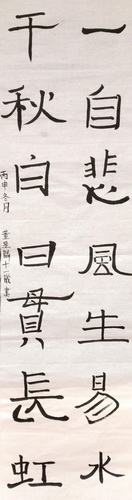 一自悲風生易水
千秋白日貫長虹
丙申冬月 董巫鷗十一歲書